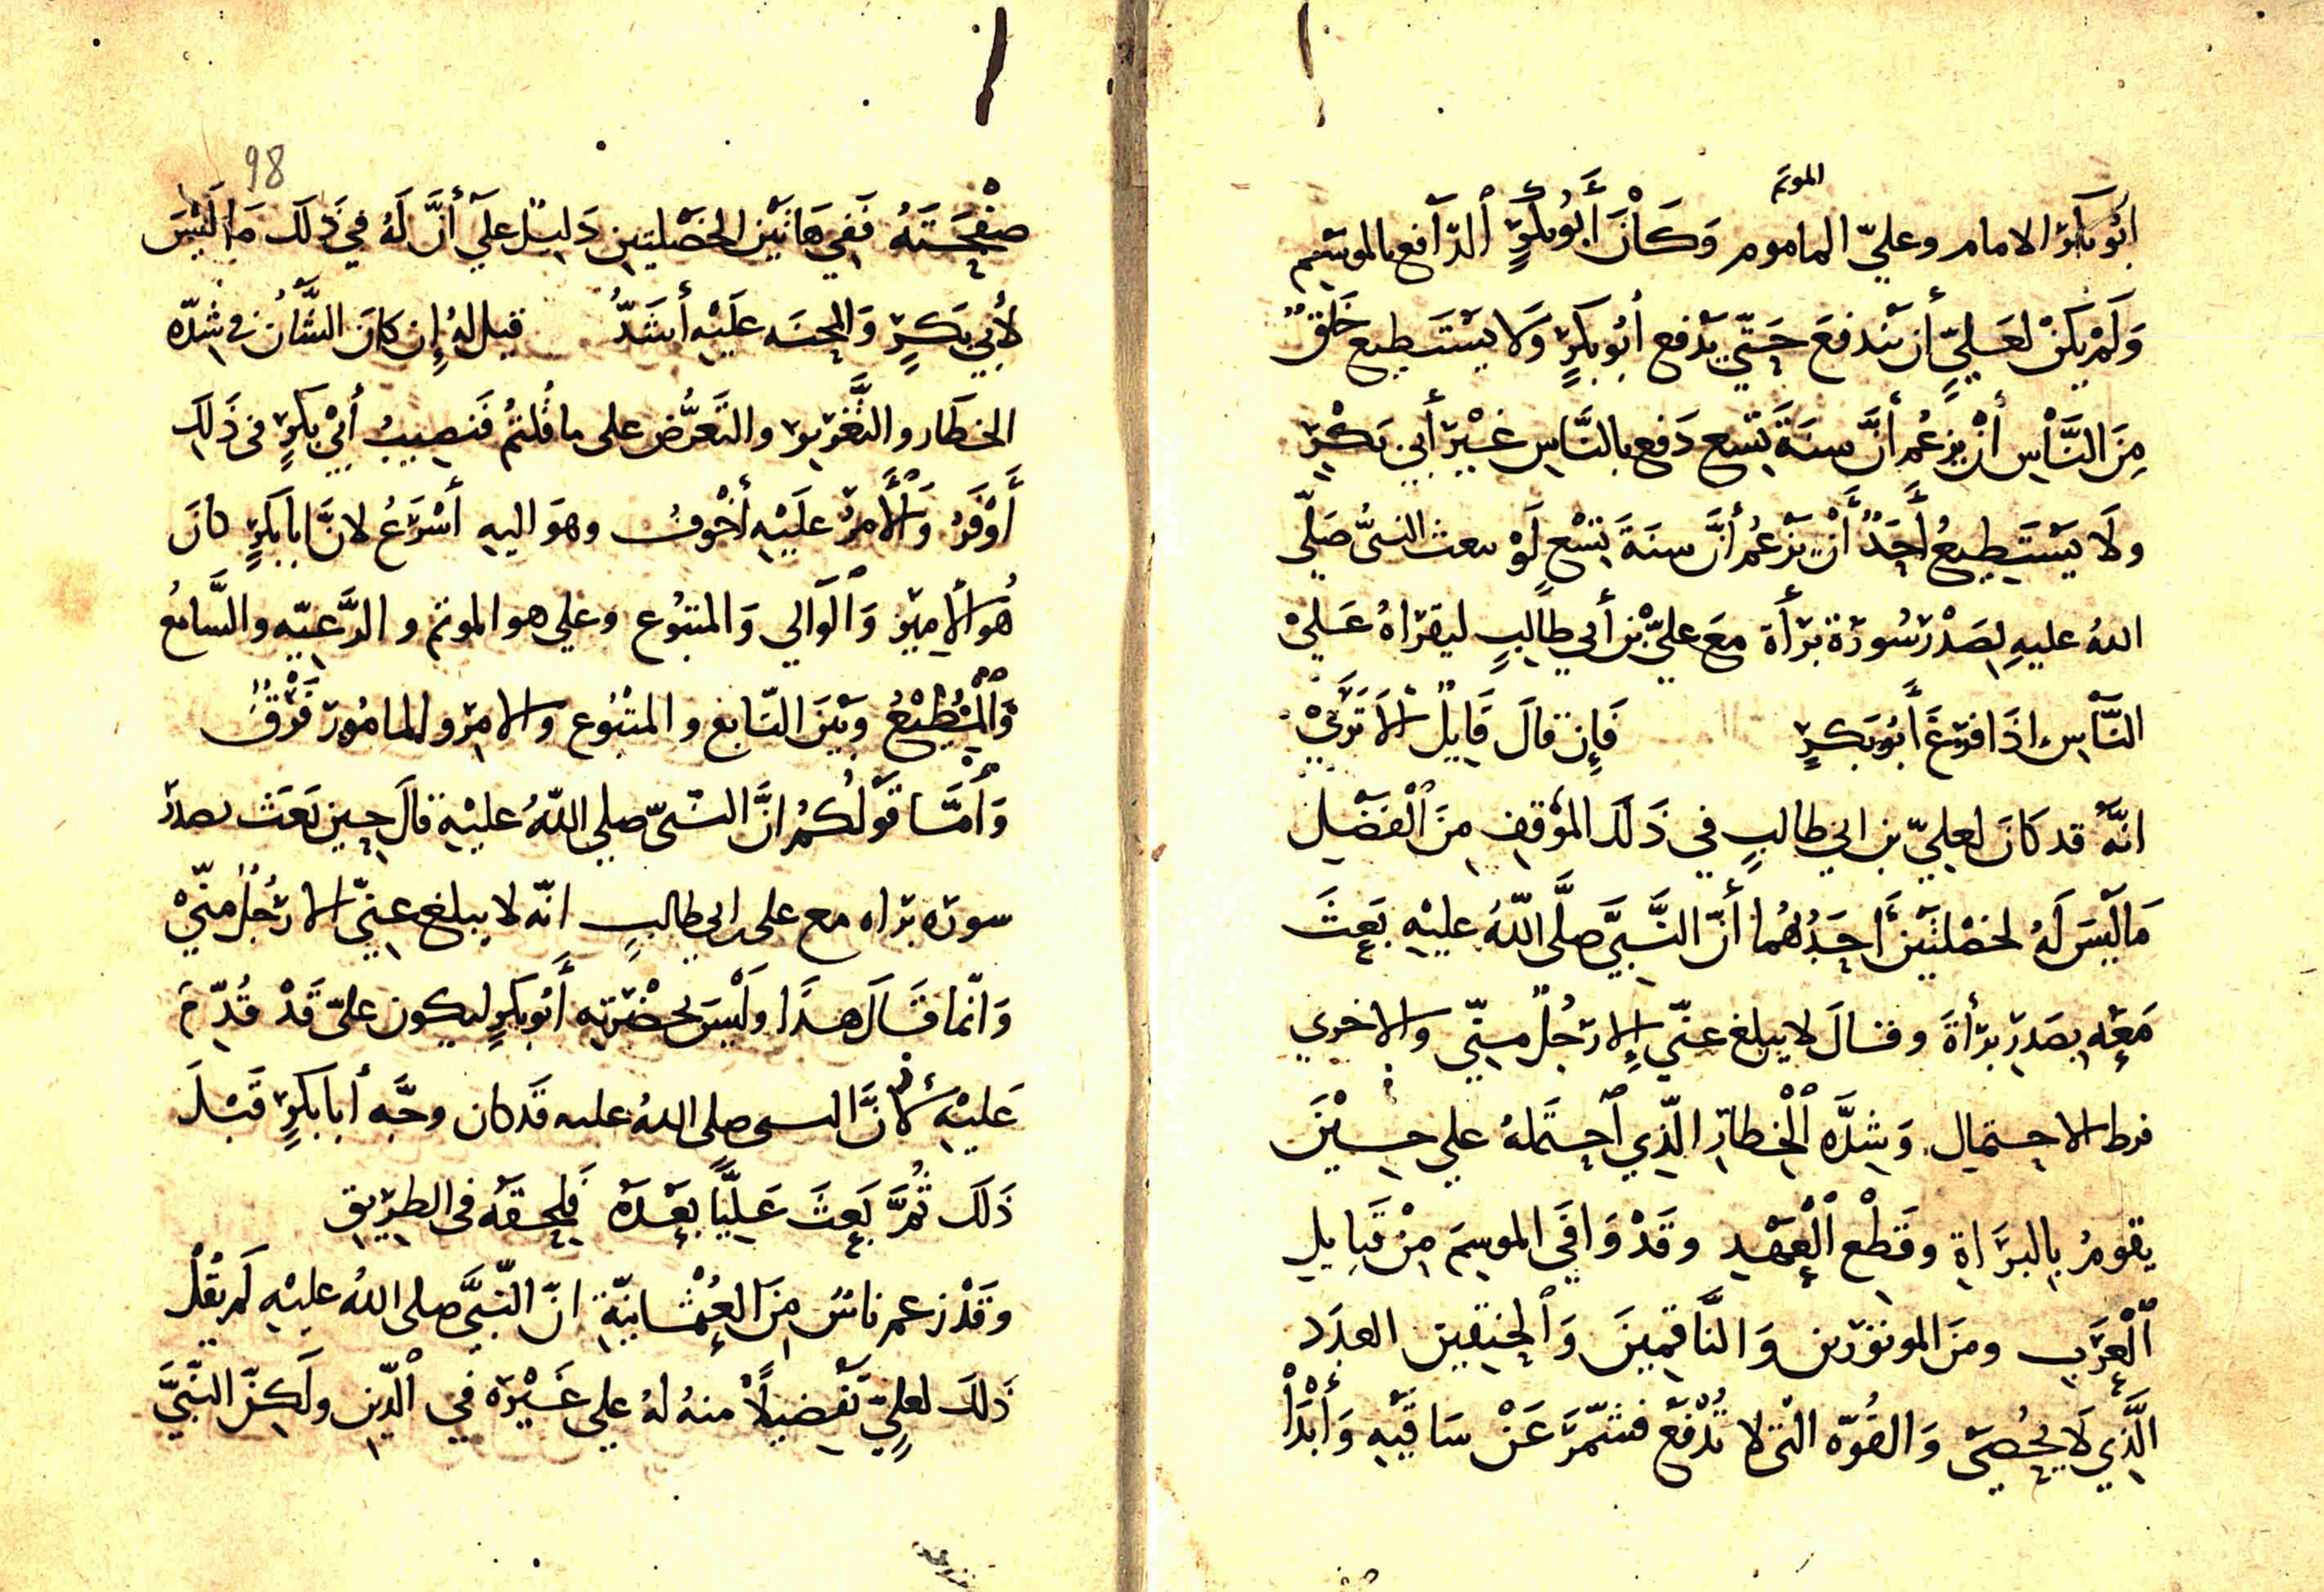 الموتم
أبُو بكر الامام وعليّ الماموم وَكَانَ أَبُو بَكرٍ الدّافع بالموسم
وَلَمْ يَكنْ لعَليٍّ أن يَندفعَ حَتّي يَدْفع أبُو بَكرٍ وَلا يَستَطيع خَلقٌ
مِنَ النَّاسِ أنْ يزعُم أنَّ سنَةَ تِسْع دَفع بالنَّاسِ غَيْر أبي بَكْرٍ
ولَا يَسْتَطِيعُ أَحَدٌ أَنْ يَزعُم أنَّ سنَةَ تِسْعٍ لَوْ بعث النبيُّ صَلّى
اللهُ عليهِ بصَدْر سُورَة بَرَأَة مَعَ عليّ بْن أبي طالِبٍ ليقرَاهُ عَليْ
النَّاسِ إذَا فرَغَ أَبُو بَكرٍ فَإِن قالَ قَايلٌ الاَ تَرَيْ
انَّهُ قد كانَ لعليّ بن ابي طالبٍ في ذَلكَ المؤقِفِ مِنَ الْفَضْل
مَا لَيْسَ لَهُ لخصْلتَيْن أَحَدُهُما أنّ النَّبيَّ صلَّى اللّهُ عليْهِ بَعِثَ
مَعَهِ بِصَدرِ بَرأةَ وقالَ لا يبلغ عنّي إلا رَجُلٌ مِنّي والاخري
فرط الاحتمالِ وَشِدَّه الْخِطَارِ الّذِي احتَملهُ علي حِسيْنَ
يقومُ بِالبرَاةِ وقَطْعِ الْعَهْدِ وقَدْ وَافَي الموسِمَ مِنْ قبايلِ
الْعرَبِ ومنَ الموتورين وَالنَّاقِمِينَ وَالْحنِقِين العدَد
الَّذِي لَا يُحْصَى وَالقُوّه الّتى لا تُدْفَع فشمّرَ عَنْ سَاقَيْهِ وَأَبْدَأ
98
صفْحَتَهُ فَفِي هَاتيْن الخَصْلتيِن دَلِيلٌ علَي أنَّ لَهُ في ذَلَك مَا لَيْسَ
لأَبِي بَكرٍ وَالمِحنَه علَيْهِ أَشَدُّ قيل لهُ إِن كانَ الشَّانُ في شِدّه
الخطَار والتَّغْرِير والتَعرُّض على ما قُلتُم فَنصِيبُ أبيْ بكَرٍ فى ذَلِكَ
أَوْفَرُ وَالأَمرُ علَيْهِ أَخْوفُ وهوَ اليهِ أسْرَعُ لانَّ ابا بَكَرٍ كانَ
هُو الأمِيرُ وَالْوَالي وَالمتبُوع وعلي هو الموتم والرَّعيّه والسَّامعُ
وَالْمُطِيْعُ وبَيْنَ التَابع والمتْبُوع والامِر والمامُور فَرْقُ
وَأَمَّا قَوْلُكُمُ انَّ النبيّ صلي اللّهُ عليْهِ قالَ حِين بَعَث بصدر
سوره براه مع على ابي طالبٍ انّه لا يبلغ عنِيّ الا رَجُلٌ منّيْ
وَانّما قَالَ هذَا ولَيْسَ بحَضْرَتِهِ أَبُو بكرٍ ليكون عليّ قَدْ قُدِّمَ
عَليْهِ لأنَّ النبى صلى اللهُ عليه قَد كان وجَّه أبا بَكَرٍ قَبْلَ
ذَلَك ثُمَّ بَعِثَ عَليَّاً بعْدَهُ فَلِحقَهُ فى الطرِيق
وقَدْ زعم ناسٌ مِنَ العُثْمَانيّةِ انّ النّبيَّ صلى اللهُ عليْهِ لَم يقُلْ
ذَلكَ لعليٍّ تَفضيلًا منهُ لهُ علي غَيْرِه في الدّين ولَكِنّ النّبيَّ